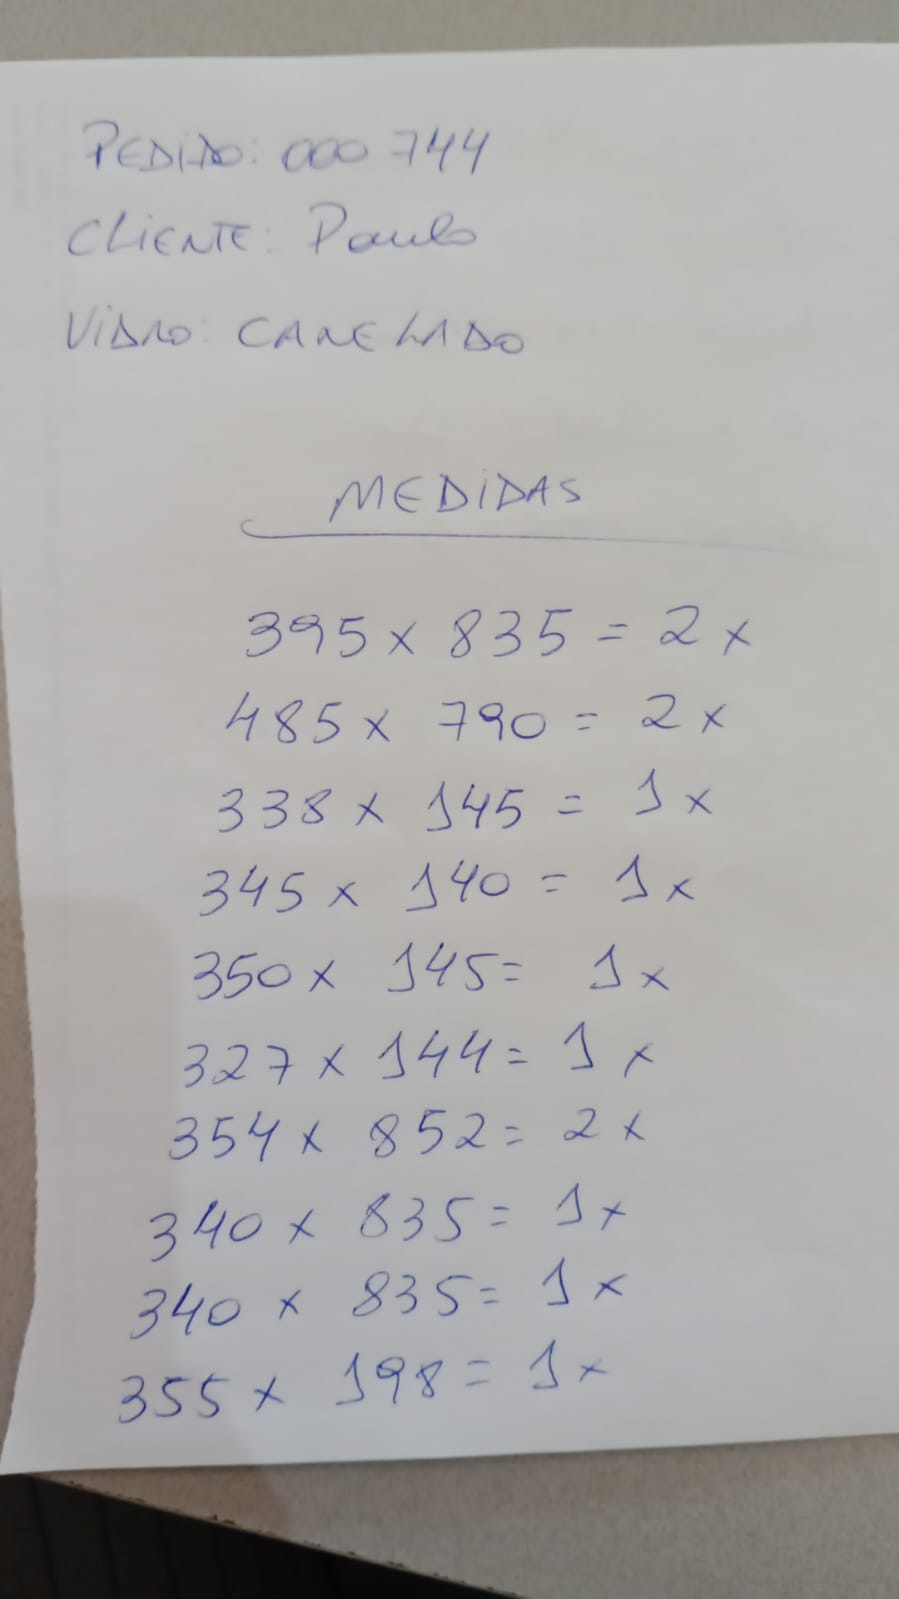 PEDIDO: 000 744
CLIENTE: Paulo
VIDRO: CANELADO
MEDIDAS
395 x 835 = 2 x
485 x 790 = 2 x
338 x 145 = 1 x
345 x 140 = 1 x
350 x 145 = 1 x
327 x 144 = 1 x
354 x 852 = 2 x
340 x 835 = 1 x
340 x 835 = 1 x
355 x 198 = 1 x